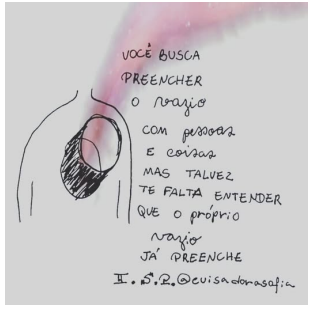 VOCÊ BUSCA
PREENCHER
O vazio
COM pessoas
E coisas
MAS TALVEZ
TE FALTA ENTENDER
QUE O próprio
vazio
JÁ PREENCHE
I. S. R. @evisadorasofia